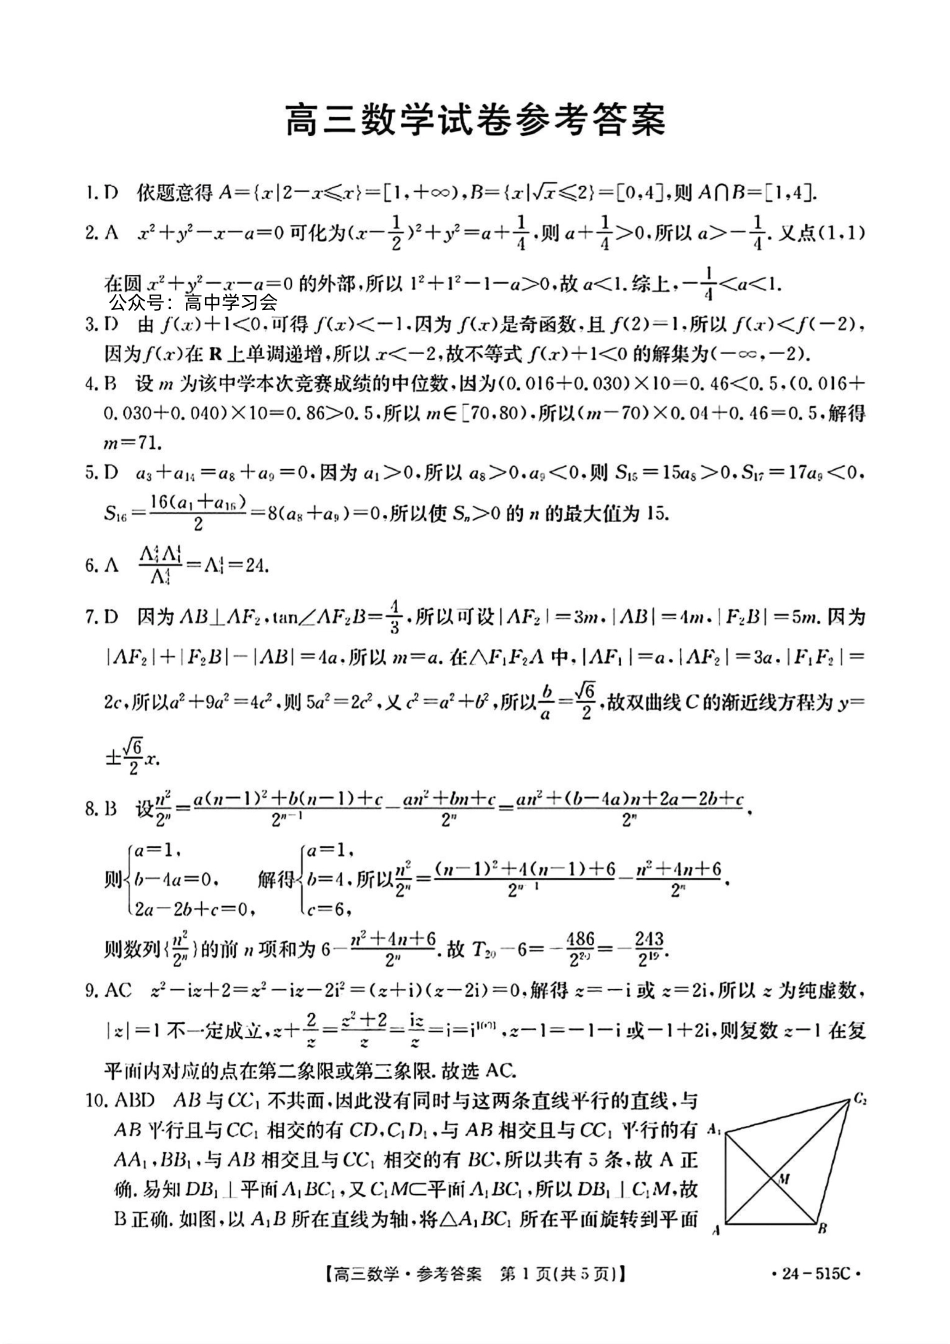 高三数学试卷参考答案
1. D 依题意得 A={x|2-x≤x}=[1,+∞),B={x|√x≤2}=[0,4],则 A∩B=[1,4].
2. A x²+y²-x-a=0 可化为(x-1/2)²+y²=a+1/4,则 a+1/4>0,所以 a>-1/4. 又点(1,1)
在圆 x²+y²-x-a=0 的外部,所以 1²+1²-1-a>0,故 a<1. 综上,-1/4<a<1.
公众号：高中学习会
3. D 由 f(x)+1<0,可得 f(x)<-1,因为 f(x)是奇函数,且 f(2)=1,所以 f(x)<f(-2),
因为 f(x)在 R 上单调递增,所以 x<-2,故不等式 f(x)+1<0 的解集为(-∞,-2).
4. B 设 m 为该中学本次竞赛成绩的中位数,因为(0.016+0.030)×10=0.46<0.5,(0.016+
0.030+0.040)×10=0.86>0.5,所以 m∈[70,80),所以(m-70)×0.04+0.46=0.5,解得
m=71.
5. D a₃+a₁₄=a₈+a₉=0,因为 a₁>0,所以 a₈>0,a₉<0,则 S₁₅=15a₈>0,S₁₇=17a₉<0,
S₁₆=16(a₁+a₁₆)/2=8(a₈+a₉)=0,所以使 Sₙ>0 的 n 的最大值为 15.
6. A A₄⁴A₄⁴/A₄⁴=A₄⁴=24.
7. D 因为 AB⊥AF₂,tan∠AF₂B=4/3,所以可设|AF₂|=3m,|AB|=4m,|F₂B|=5m. 因为
|AF₂|+|F₂B|-|AB|=4a,所以 m=a. 在△F₁F₂A 中,|AF₁|=a,|AF₂|=3a,|F₁F₂|=
2c,所以a²+9a²=4c²,则 5a²=2c²,又 c²=a²+b²,所以b/a=√6/2,故双曲线 C 的渐近线方程为 y=
±√6/2 x.
8. B 设n²/2ⁿ=[a(n-1)²+b(n-1)+c]/2ⁿ⁻¹-(an²+bn+c)/2ⁿ=[an²+(b-4a)n+2a-2b+c]/2ⁿ,
则{a=1, b-4a=0, 2a-2b+c=0, 解得{a=1, b=4, c=6, 所以n²/2ⁿ=[(n-1)²+4(n-1)+6]/2ⁿ⁻¹-(n²+4n+6)/2ⁿ,
则数列{n²/2ⁿ}的前 n 项和为 6-(n²+4n+6)/2ⁿ. 故 T₂₀-6=-486/2²⁰=-243/2¹⁹.
9. AC z²-iz+2=z²-iz-2i²=(z+i)(z-2i)=0,解得 z=-i 或 z=2i,所以 z 为纯虚数,
|z|=1 不一定成立,z+2/z=(z²+2)/z=iz/z=i=,z-1=-1-i 或-1+2i,则复数 z-1 在复
平面内对应的点在第二象限或第三象限. 故选 AC.
10. ABD AB 与 CC₁ 不共面,因此没有同时与这两条直线平行的直线,与
AB 平行且与 CC₁ 相交的有 CD,C₁D₁,与 AB 相交且与 CC₁ 平行的有
AA₁,BB₁,与 AB 相交且与 CC₁ 相交的有 BC,所以共有 5 条,故 A 正
确. 易知 DB₁⊥平面 A₁BC₁,又 C₁M⊂平面 A₁BC₁,所以 DB₁⊥C₁M,故
B 正确. 如图,以 A₁B 所在直线为轴,将△A₁BC₁ 所在平面旋转到平面
C₂
A₁
M
A
B
【高三数学·参考答案 第 1 页(共 5 页)】
·24-515C·